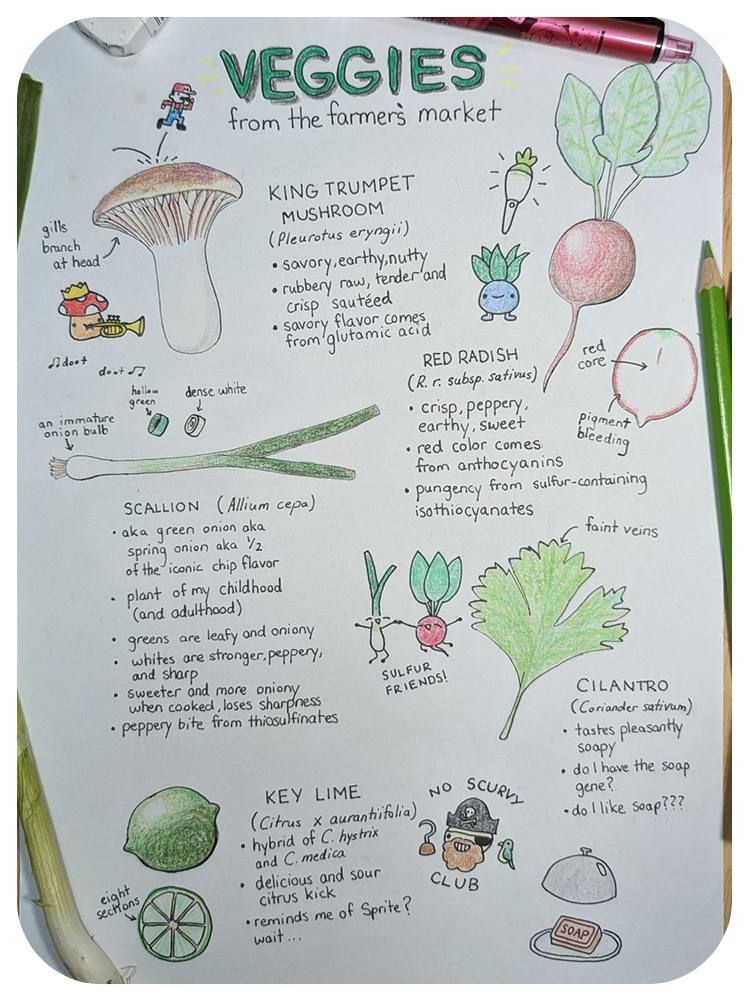 VEGGIES
from the farmer's market
KING TRUMPET
MUSHROOM
(Pleurotus eryngii)
• savory, earthy, nutty
• rubbery raw, tender and
crisp sautéed
• savory flavor comes
from glutamic acid
gills
branch
at head
♫ doot
doot ♫
RED RADISH
(R. r. subsp. sativus)
• crisp, peppery,
earthy, sweet
• red color comes
from anthocyanins
• pungency from sulfur-containing
isothiocyanates
red
core
pigment
bleeding
hollow
green
dense white
an immature
onion bulb
SCALLION (Allium cepa)
• aka green onion aka
spring onion aka ½
of the iconic chip flavor
• plant of my childhood
(and adulthood)
• greens are leafy and oniony
• whites are stronger, peppery,
and sharp
• sweeter and more oniony
when cooked, loses sharpness
• peppery bite from thiosulfinates
SULFUR
FRIENDS!
faint veins
CILANTRO
(Coriander sativum)
• tastes pleasantly
soapy
• do I have the soap
gene?
• do I like soap???
KEY LIME
(Citrus x aurantiifolia)
• hybrid of C. hystrix
and C. medica
• delicious and sour
citrus kick
• reminds me of Sprite?
wait...
eight
sections
NO SCURVY
CLUB
SOAP